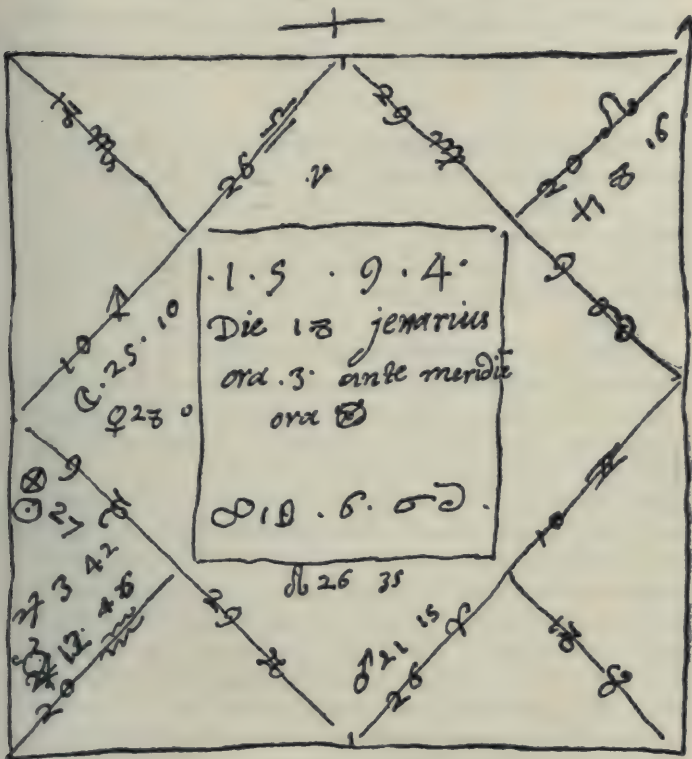 .1.5 .9.4.
Die 18 jenarius
ora .3. ante meridiē
ora ☒
18 ♏
26 ♎
29 ♍
20 ♌
♄ 8 .6
9
10 ♐
☾.25.10
♀28 0
9 ♑
⊗
☉27
♃ 3 42
12 46
20 ♒
29
☊ 26 35
♂21 15
26 ♈
18 ♉
10 ♊